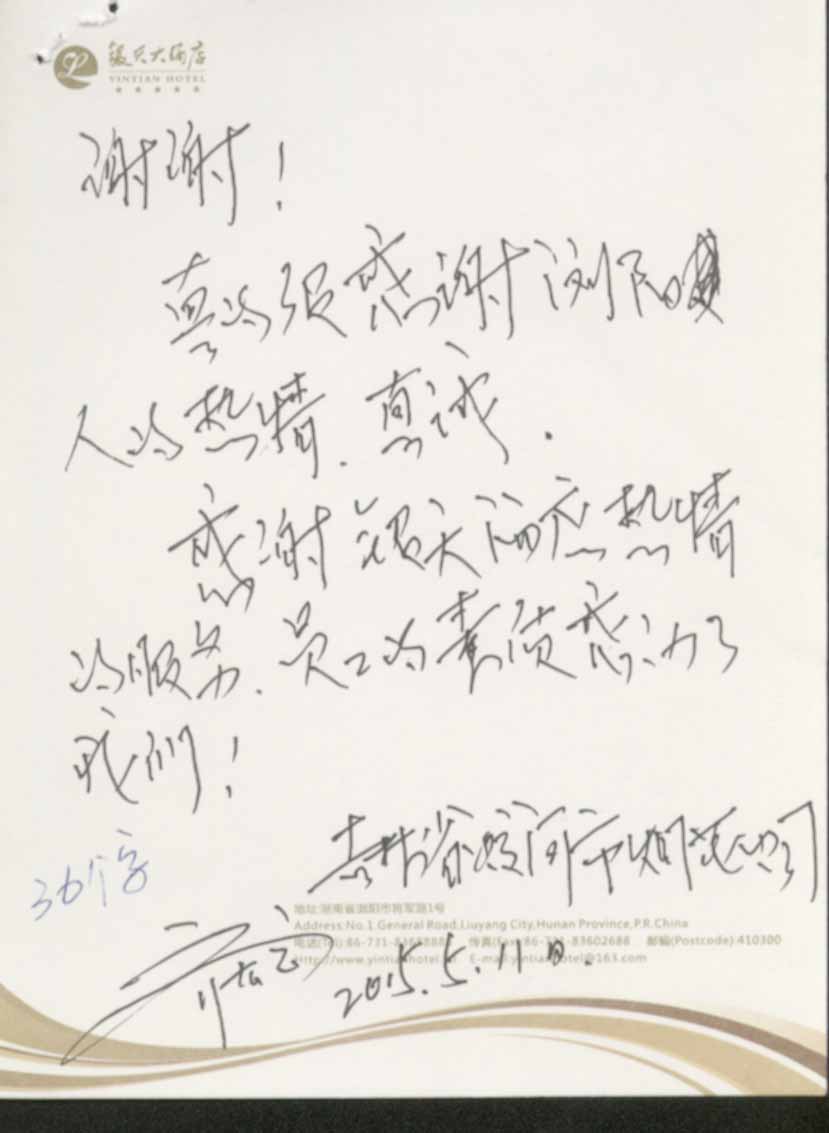 银天大酒店
YINTIAN HOTEL
谢谢!
真的很感谢浏阳
人的热情、真诚.
感谢银天酒店热情
的服务、员工的素质感动了
我们!
36个字
吉林省 河市烟花公司
地址:湖南省浏阳市将军路1号
Address:No.1 General Road,Liuyang City,Hunan Province,P.R.China
电话(Tel):86-731- 传真(Fax):86-731-83602688 邮编(Postcode):410300
Http://www.yintianhotel. E-mail:yintianhotel@163.com
2015.5.11日.